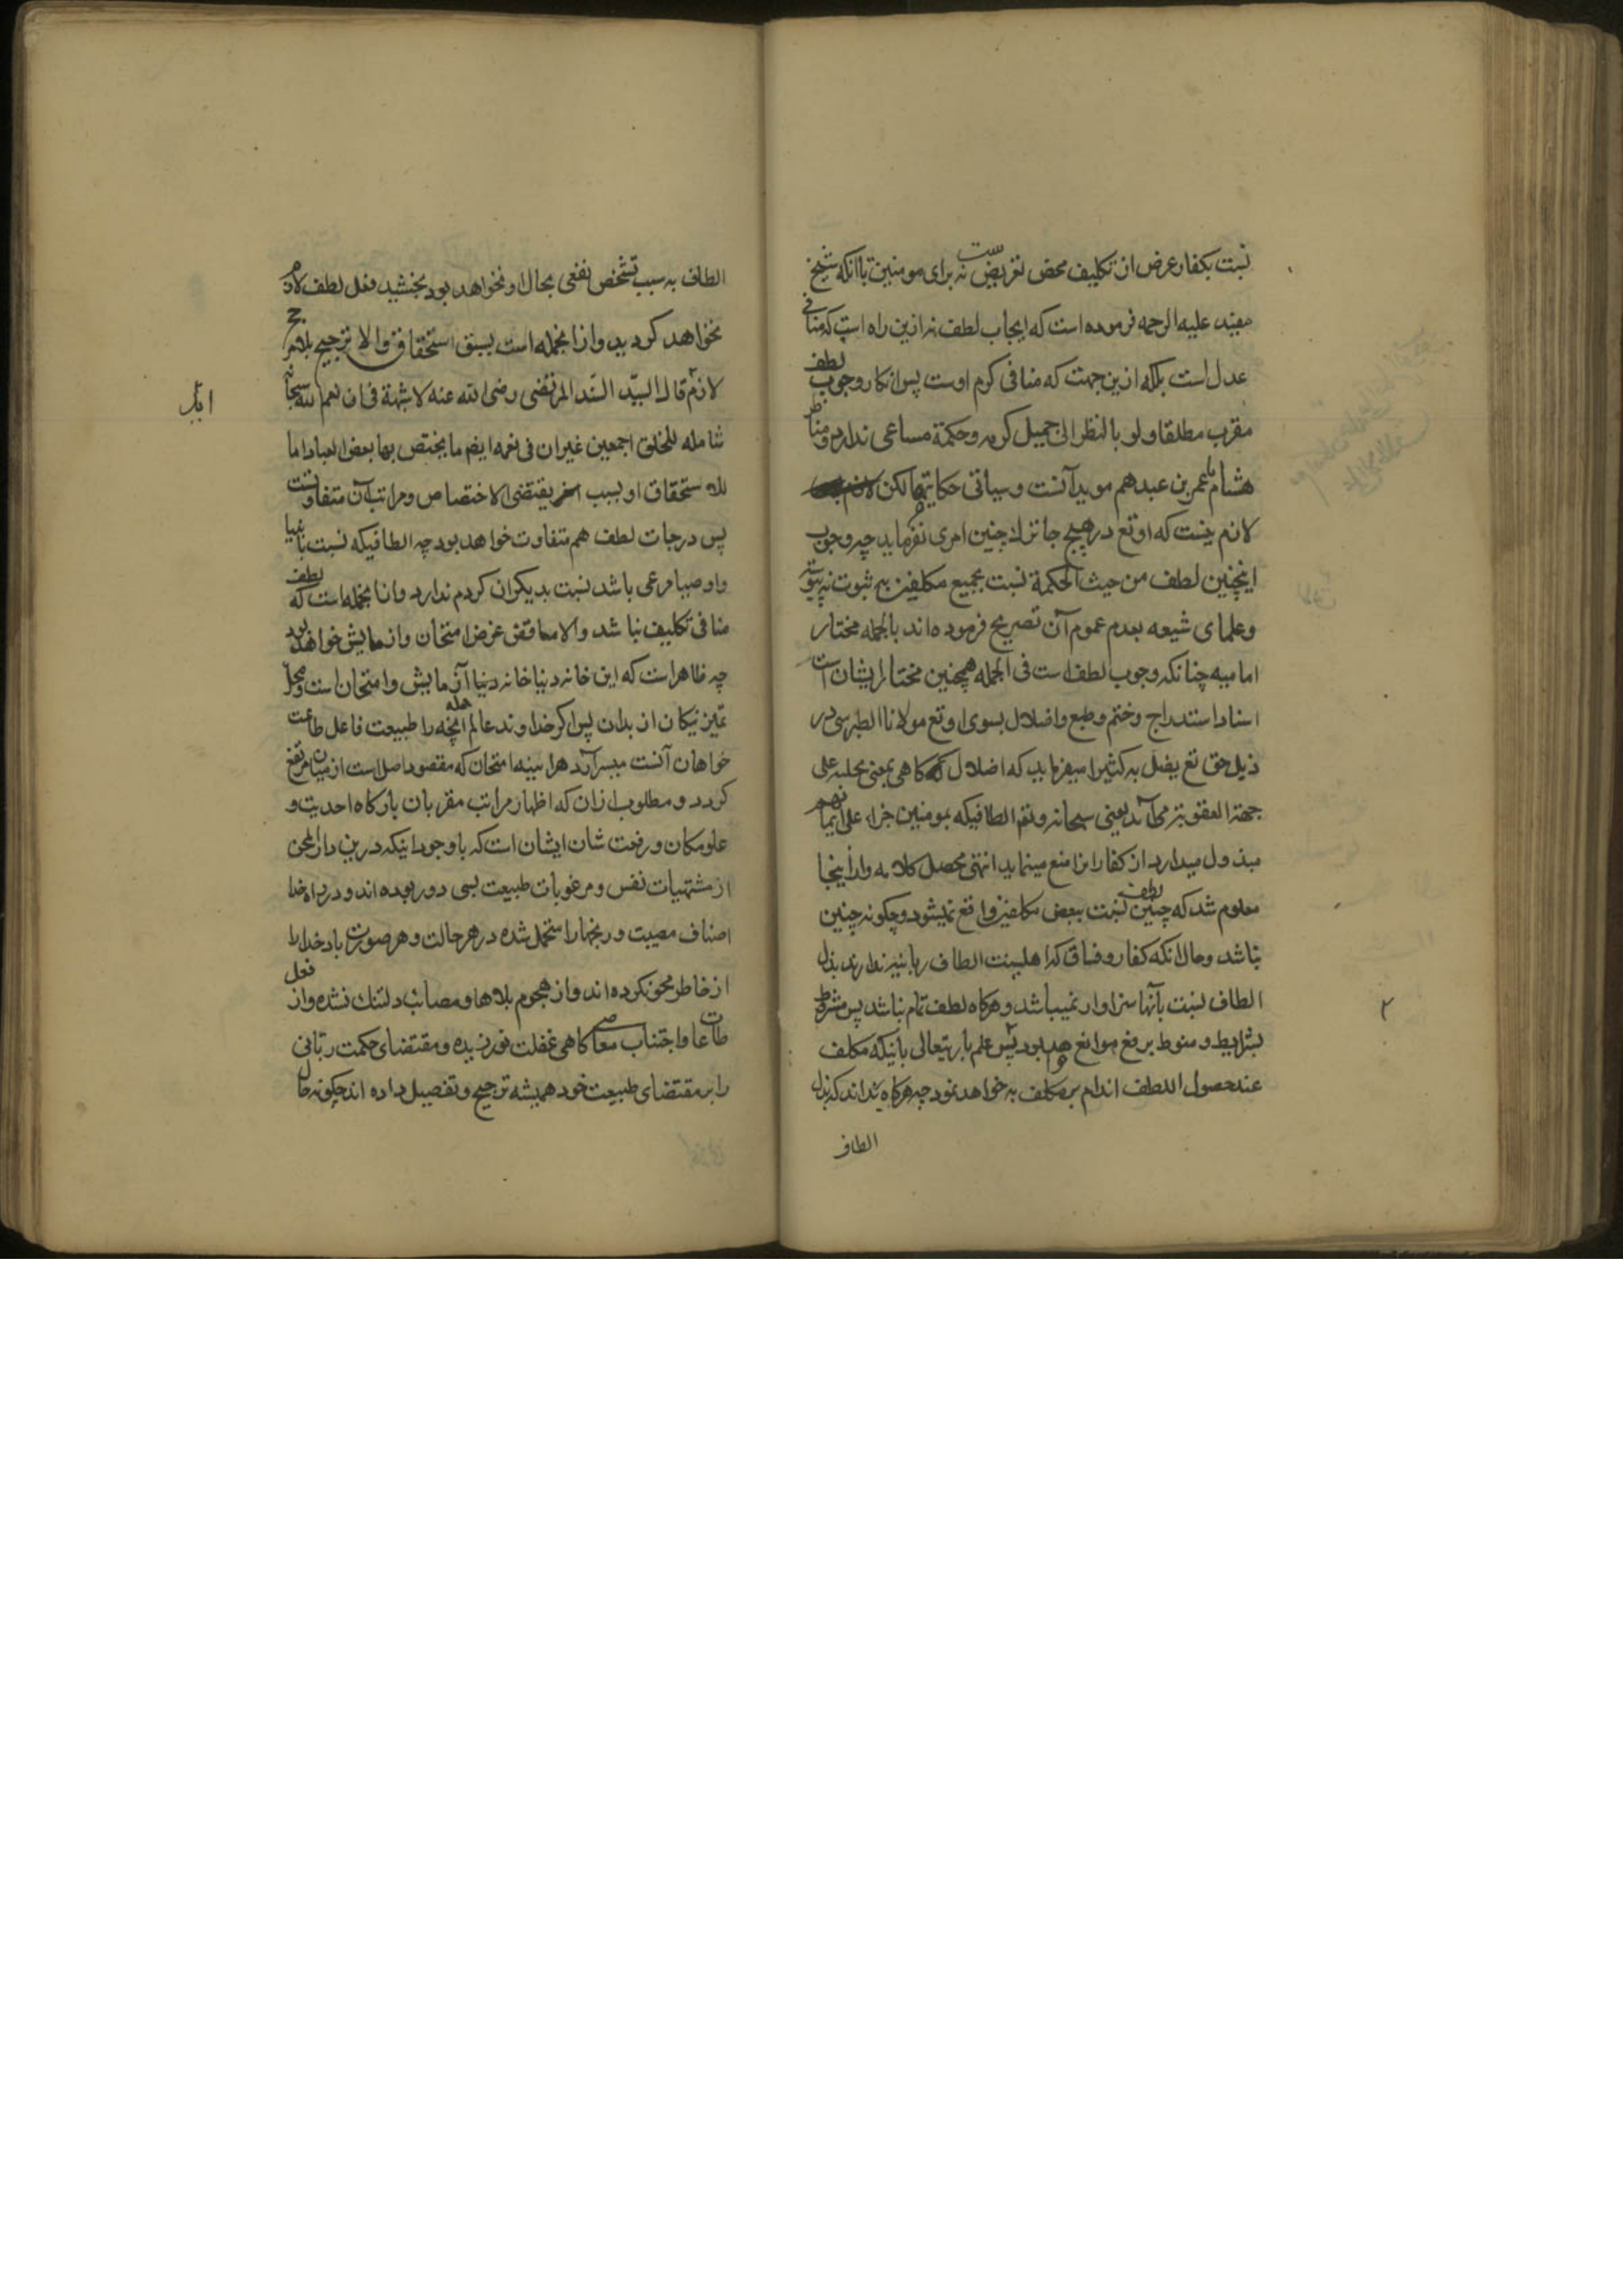 نسبت بکفار غرض از تکلیف محض تعریض ست نه برای مومنین با آنکه شیخ
مفید علیه الرحمه فرموده است که ایجاب لطف نه ازین راه است که منافی
عدل است بلکه ازین جهت که منافی کرم اوست پس انکار وجوب لطف
مقرب مطلقا و لو بالنظر الی جمیل کرمه و حکمة مساغی ندارد و مناظره
هشام با عمر بن عبید هم موید آنست و سیاتی حکایتها لکن
لازم نیست که او تع در هیچ جا ترک چنین امری نفرماید چه وجوب
اینچنین لطف من حیث الحکمة نسبت بجمیع مکلفین به ثبوت نه پیوسته
و علمای شیعه بعدم عموم آن تصریح فرموده اند بالجمله مختار
امامیه چنانکه وجوب لطف است فی الجمله همچنین مختار ایشان است
اسناد استدراج و ختم و طبع و اضلال بسوی او تع مولانا الطبرسی در
ذیل حق تع یضل به کثیرا میفرماید که اضلال گاهی بمعنی تخلیه علی
جهة العقوبة می آید یعنی سبحانه و تع الطافیکه بمومنین جزاء علی ایمانهم
مبذول میدارد از کفار انرا منع مینماید انتهی محصل کلامه و از اینجا
معلوم شد که چنین لطف نسبت ببعض مکلفین واقع نمیشود و چگونه چنین
نباشد و حال آنکه کفار و فساق که اهلیت الطاف ربانیه ندارند بذل
الطاف نسبت بآنها سزاوار نمیباشد و هرگاه لطف تام نباشد پس مشروط
بشرایط و منوط برفع موانع خواهد بود پس علم باریتعالی باینکه مکلف
عند حصول اللطف اقدام بر مکلف به خواهد نمود چه هرگاه بداند که بذل
الطاف
الطاف به سبب تشخص نفعی بحال او نخواهد بود بخشید فعل لطف لازم
نخواهد گردید و ازانجمله است سبق استحقاق و الا ترجیح بلا مرجح
لازم آید قال السید السند المرتضی رضی الله عنه لا شبهة فی ان نعم الله سبحانه
شاملة للخلق اجمعین غیر ان فی نعمه ایضا ما یختص بها بعض العباد اما
للاستحقاق او بسبب اخر یقتضی الاختصاص و مراتب آن متفاوتست
پس درجات لطف هم متفاوت خواهد بود چه الطافیکه نسبت بانبیا
و اوصیا مرعی باشد نسبت بدیگران لزوم ندارد و ازانجمله است که لطف
منافی تکلیف نباشد و الا مناقض غرض امتحان و ازمایش خواهد بود
چه ظاهر است که این خانه دنیا خانه دنیا آزمایش و امتحان است و محل
تمیز نیکان از بدان پس اگر خداوند عالم انچه را طبیعت فاعل طاعت
خواهان آنست میسر آرد هر آینه امتحان که مقصود اصل است از میان مرتفع
گردد و مطلوب ازان که اظهار مراتب مقربان بارگاه احدیت و
علو مکان و رفعت شان ایشان است که باوجود اینکه درین دار المحن
از مشتهیات نفس و مرغوبات طبیعت بسی دور بوده اند و در راه خدا
اصناف مصیبت و رنجها را متحمل شده در هر حالت و هر صورت یاد خدا را
از خاطر محو نکرده اند و از هجوم بلاها و مصائب دلتنگ نشده و از فعل
طاعات و اجتناب معاصی گاهی غفلت نورزیده و مقتضای حکمت ربانی
را بر مقتضای طبیعت خود همیشه ترجیح و تفضیل داده اند چگونه حال